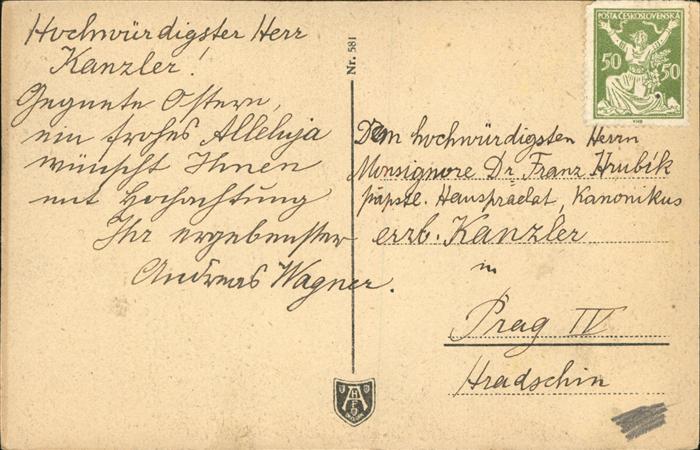 Hochwürdigster Herr
Kanzler!
Gegnete Ostern,
ein frohes Alleluja
wünscht Ihnen
mit Hochachtung
Ihr ergebenster
Andreas Wagner.
Nr. 581
POŠTA ČESKOSLOVENSKÁ
50 50
Dem hochwürdigsten Herrn
Monsignore Dr. Franz Hrubík
päpstl. Hausprälat, Kanonikus
erzb. Kanzler
in
Prag IV
Hradschin